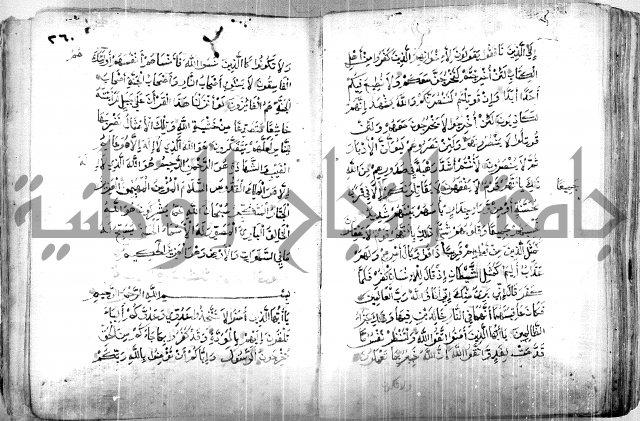 إلى الذين نافقوا يقولون لإخوانهم الذين كفروا من أهل
الكتاب لئن أخرجتم لنخرجن معكم ولا نطيع فيكم
أحدا أبدا وإن قوتلتم لننصرنكم والله يشهد إنهم
لكاذبون لئن أخرجوا لا يخرجون معهم ولئن
قوتلوا لا ينصرونهم ولئن نصروهم ليولن الأدبار
ثم لا ينصرون لأنتم أشد رهبة في صدورهم من الله
ذلك بأنهم قوم لا يفقهون لا يقاتلونكم إلا في قرى
جميعا
محصنة أو من وراء جدار بأسهم بينهم شديد
تحسبهم جميعا وقلوبهم شتى ذلك بأنهم قوم لا يعقلون
كمثل الذين من قبلهم قريبا ذاقوا وبال أمرهم ولهم
عذاب أليم كمثل الشيطان إذ قال للإنسان اكفر فلما
كفر قال إني بريء منك إني أخاف الله رب العالمين
فكان عاقبتهما أنهما في النار خالدين فيها وذلك جزاء
الظالمين يا أيها الذين آمنوا اتقوا الله ولتنظر نفس ما
قدمت لغد واتقوا الله إن الله خبير بما تعملون
٢٦٠
ولا تكونوا كالذين نسوا الله فأنساهم أنفسهم أولئك هم
الفاسقون لا يستوي أصحاب النار وأصحاب الجنة أصحاب
الجنة هم الفائزون لو أنزلنا هذا القرآن على جبل لرأيته
خاشعا متصدعا من خشية الله وتلك الأمثال نضربها
للناس لعلهم يتفكرون هو الله الذي لا إله إلا هو عالم
الغيب والشهادة هو الرحمن الرحيم هو الله الذي لا إله
إلا هو الملك القدوس السلام المؤمن المهيمن العزيز
الجبار المتكبر سبحان الله عما يشركون هو الله
الخالق البارئ المصور له الأسماء الحسنى يسبح له
ما في السموات والأرض وهو العزيز الحكيم
بسم الله الرحمن الرحيم
يا أيها الذين آمنوا لا تتخذوا عدوي وعدوكم أولياء
تلقون إليهم بالمودة وقد كفروا بما جاءكم من الحق
يخرجون الرسول وإياكم أن تؤمنوا بالله ربكم
جامعة النجاح الوطنية